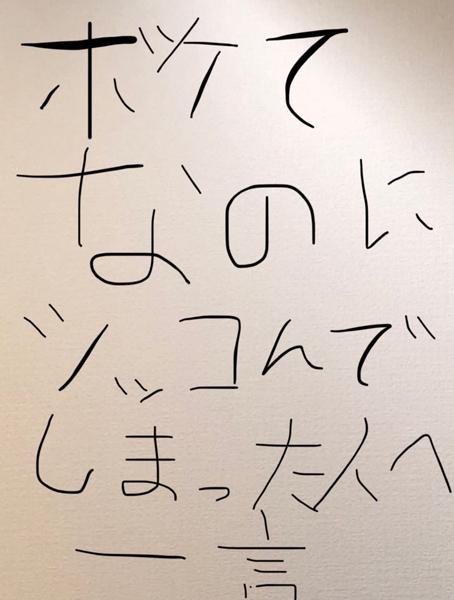 ボケて
なのに
ツッコんで
しまった人へ
一言